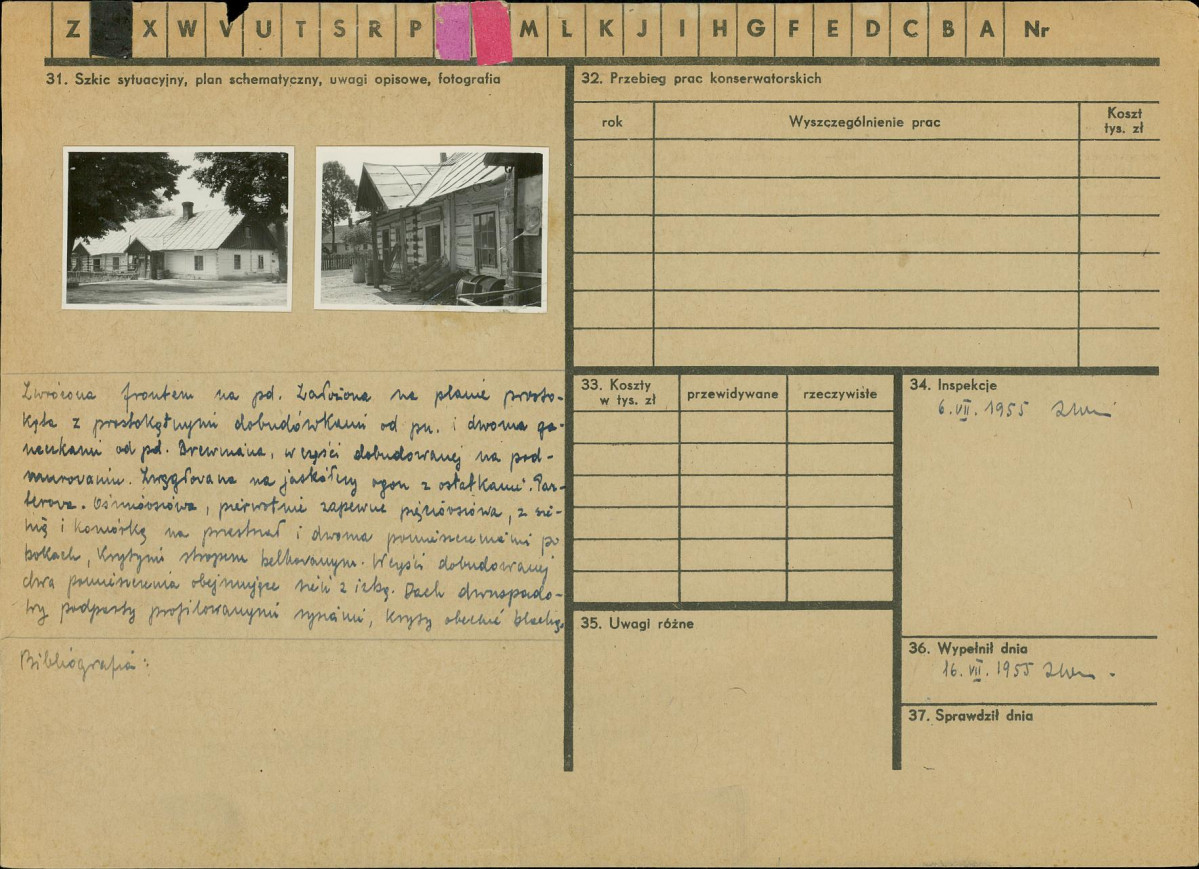 Z X W V U T S R P M L K J I H G F E D C B A Nr
31. Szkic sytuacyjny, plan schematyczny, uwagi opisowe, fotografia
Zwrócona frontem na pd. Założona na planie prosto-
kąta z prostokątnymi dobudówkami od pn. i dwoma ga-
neczkami od pd. Drewniana, w części dobudowanej na pod-
murowaniu. Zwęgłowana na jaskółczy ogon z ostatkami. Par-
terowa. Ośmioosiowa, pierwotnie zapewne pięcioosiowa, z sie-
nią i komórką na przestrzał i dwoma pomieszczeniami po
bokach, krytymi stropem belkowanym. W części dobudowanej
dwa pomieszczenia obejmujące sień z izbą. Dach dwuspado-
wy podparty profilowanymi rysiami, kryty obecnie blachą.
Bibliografia:
32. Przebieg prac konserwatorskich
rok Wyszczególnienie prac Koszt
tys. zł
33. Koszty
w tys. zł przewidywane rzeczywiste
34. Inspekcje
6. VII. 1955
35. Uwagi różne
36. Wypełnił dnia
16. VII. 1955
37. Sprawdził dnia